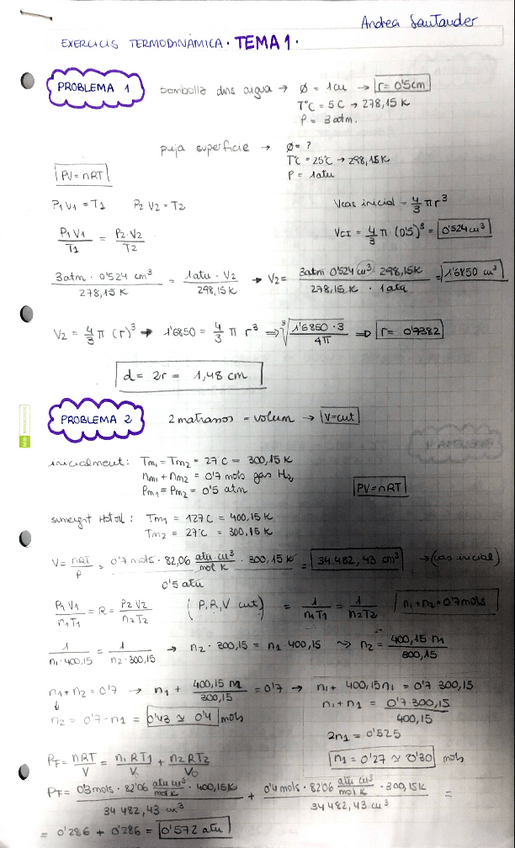 Andrea Santander
EXERCICIS TERMODINÀMICA · TEMA 1 ·
PROBLEMA 1
bombolla dins aigua → Ø = 1cm → r = 0'5cm
T°C = 5C → 278,15 K
P = 3 atm.
puja superfície → Ø = ?
T°C = 25°C → 298,15K
P = 1atm
PV = nRT
P1 V1 = T1 P2 V2 = T2
Vcas inicial = 4/3 π r³
P1 V1 / T1 = P2 · V2 / T2
VCI = 4/3 π (0'5)³ = 0'524 cm³
3 atm · 0'524 cm³ / 278,15 K = 1 atm · V2 / 298,15K → V2 = 3 atm 0'524 cm³ · 298,15K / 278,15 K · 1 atm = 1'6850 cm³
V2 = 4/3 π (r)³ → 1'6850 = 4/3 π r³ ⇒ ³√(1'6850 · 3 / 4π) ⇒ r = 0'7382
d = 2r = 1,48 cm
PROBLEMA 2
2 matrassos = volum → V = cnt
inicialment: Tm1 = Tm2 = 27 C = 300,15 K
nm1 + nm2 = 0'7 mols gas H2
Pm1 = Pm2 = 0'5 atm
PV = nRT
Tm1 = 127 C = 400,15 K
Tm2 = 27°C = 300,15 K
V = nRT / P = 0'7 mols · 82,06 atm cm³ / mol K · 300,15 K / 0'5 atm = 34.482,43 cm³ → (cas inicial)
P1 V1 / n1 T1 = R = P2 V2 / n2 T2 (P, R, V cnt) = 1 / n1 T1 = 1 / n2 T2 n1 + n2 = 0'7 mols
1 / n1 · 400,15 = 1 / n2 · 300,15 → n2 · 300,15 = n1 400,15 → n2 = 400,15 n1 / 300,15
n1 + n2 = 0'7 → n1 + 400,15 n1 / 300,15 = 0'7 → n1 + 400,15 n1 = 0'7 300,15
n1 + n1 = 0'7 300,15 / 400,15
n2 = 0'7 - n1 = 0'43 ≈ 0'4 mols
2n1 = 0'525
n1 = 0'27 ≈ 0'30 mols
PF = nRT / V = n1 RT1 / V + n2 RT2 / V
PF = 0'3 mols · 82'06 atm cm³ / mol K · 400,15K / 34 482,43 cm³ + 0'4 mols · 82'06 atm cm³ / mol K · 300,15K / 34 482,43 cm³ =
= 0'286 + 0'286 = 0'572 atm